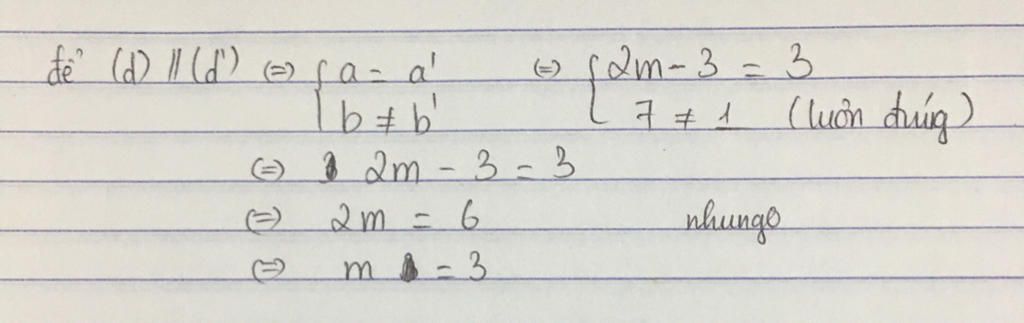 để (d) // (d') <=> { a = a' <=> { 2m - 3 = 3
b ≠ b' 7 ≠ 1 (luôn đúng)
<=> 2m - 3 = 3
<=> 2m = 6 nhungo
<=> m = 3